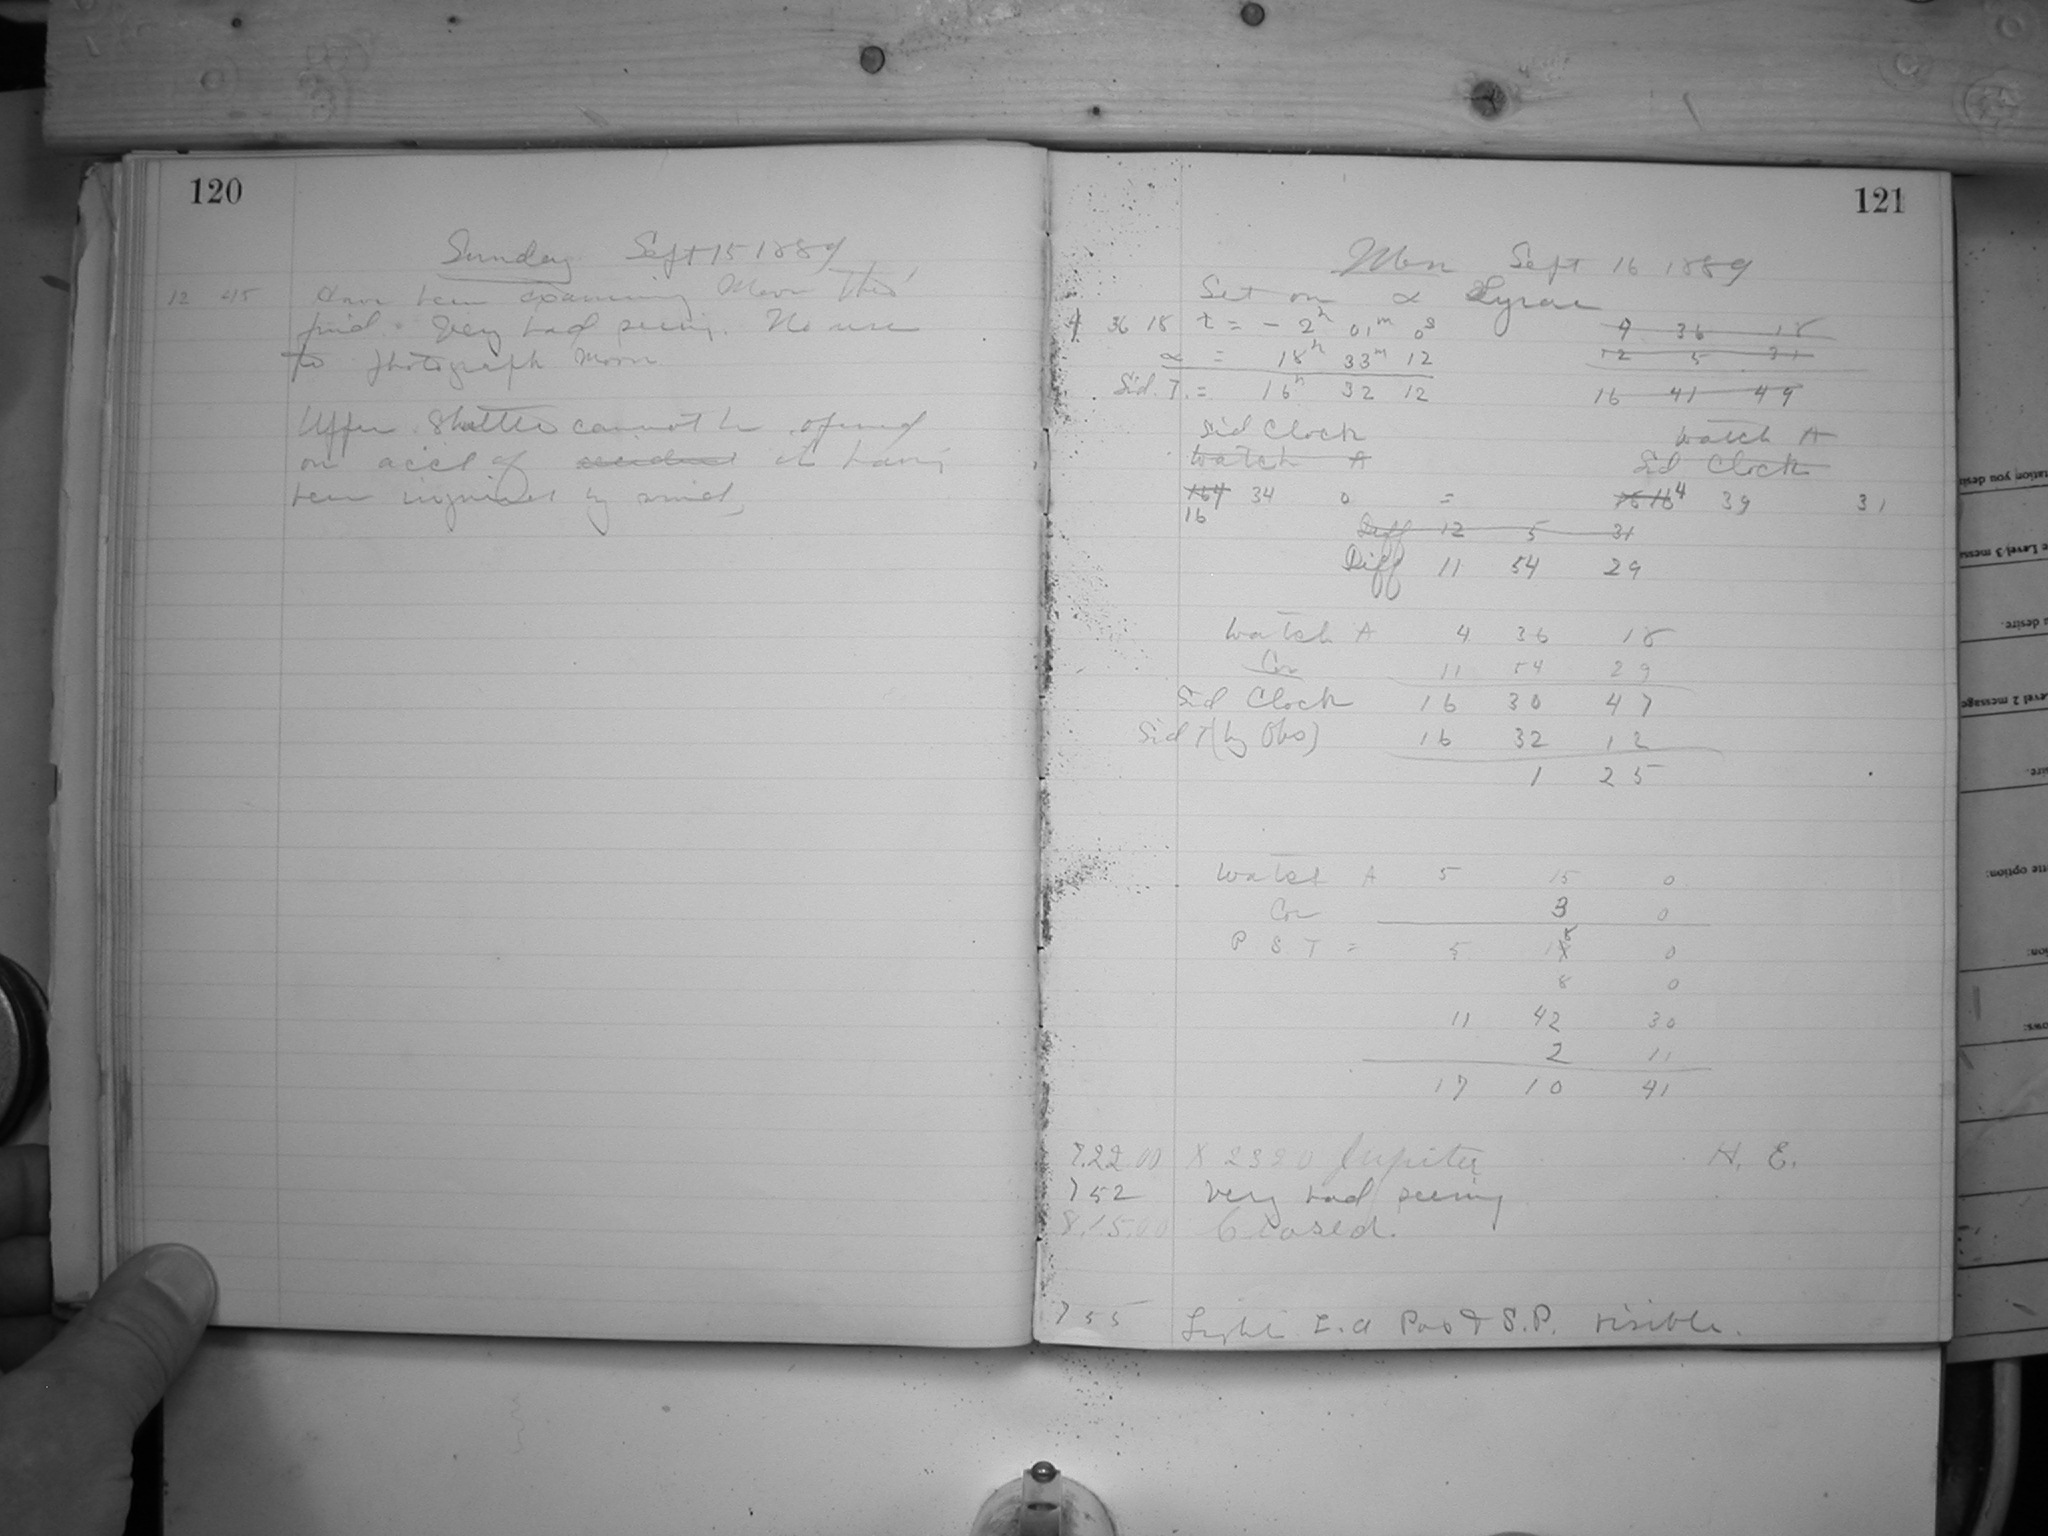 120
Sunday Sept 15 1889
12 45 Have been examining Moon thro'
find. Very bad seeing. No use
to photograph Moon
Upper Shutter cannot be opened
on acct of accident its having
been injured by wind,
121
Mon Sept 16 1889
Set on α Lyrae
4 36 18 t = - 2h 01m 0s 4 36 18
α = 18h 33m 12 12 5 31
Sid. T. = 16h 32 12 16 41 49
Sid Clock Watch A
Watch A Sid Clock
16 34 0 = 4 39 31
Diff 12 5 31
Diff 11 54 29
Watch A 4 36 18
Cor 11 54 29
Sid Clock 16 30 47
Sid T (by Obs) 16 32 12
1 25
Watch A 5 15 0
Cor 3 0
P S T = 5 18 0
8 0
11 42 30
2 11
17 10 41
7.22 00 X 2320 Jupiter H. E.
7 52 Very bad seeing
8.15.00 Closed.
7 55 Light S.P. visible.